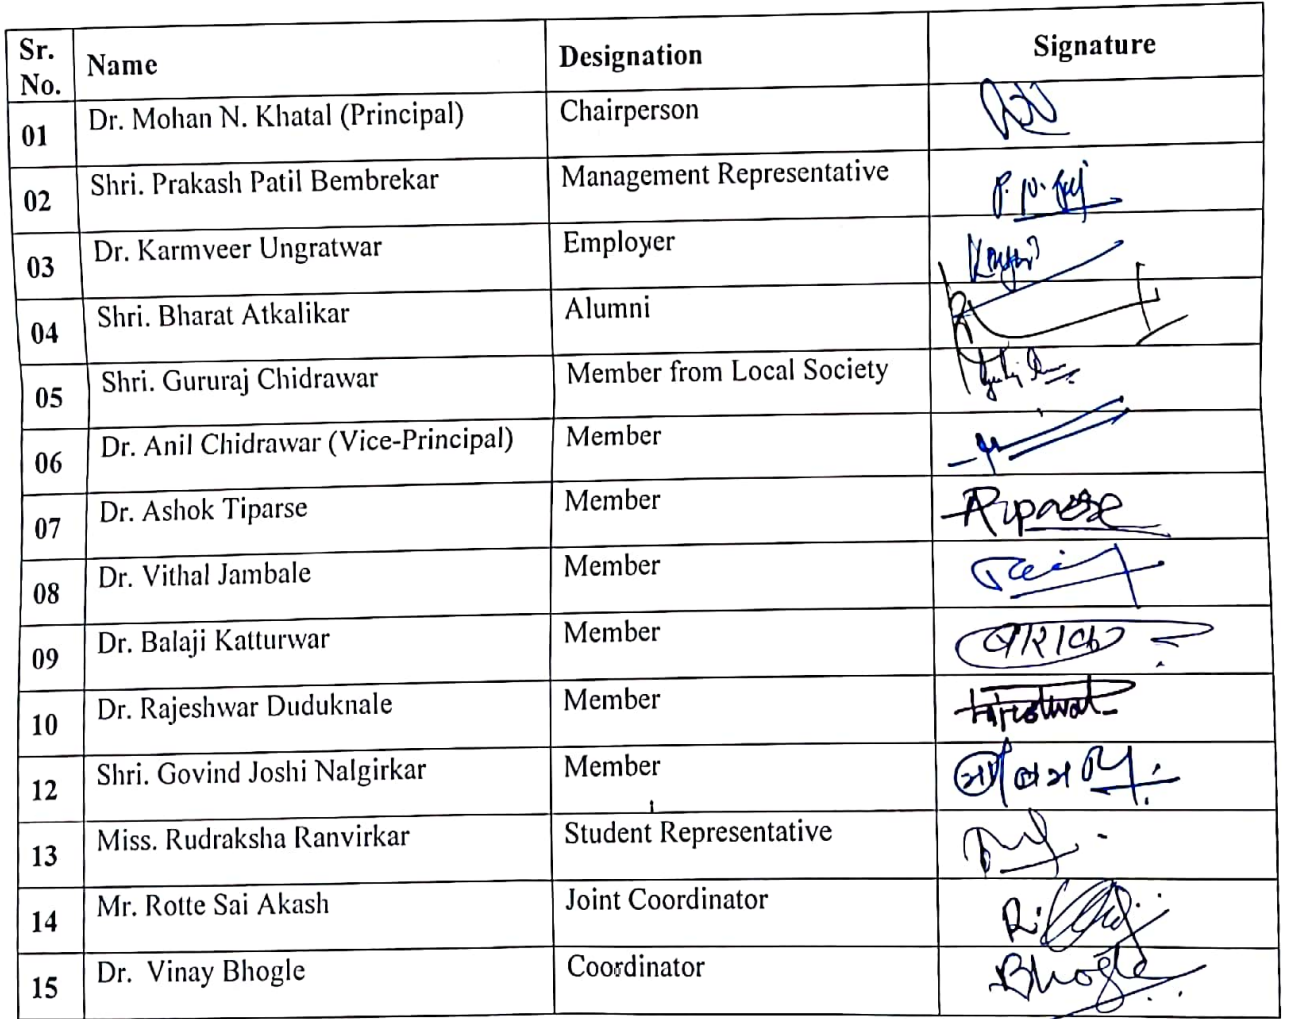 Sr. No. Name Designation Signature
01 Dr. Mohan N. Khatal (Principal) Chairperson
02 Shri. Prakash Patil Bembrekar Management Representative
03 Dr. Karmveer Ungratwar Employer
04 Shri. Bharat Atkalikar Alumni
05 Shri. Gururaj Chidrawar Member from Local Society
06 Dr. Anil Chidrawar (Vice-Principal) Member
07 Dr. Ashok Tiparse Member
08 Dr. Vithal Jambale Member
09 Dr. Balaji Katturwar Member
10 Dr. Rajeshwar Duduknale Member
12 Shri. Govind Joshi Nalgirkar Member
13 Miss. Rudraksha Ranvirkar Student Representative
14 Mr. Rotte Sai Akash Joint Coordinator
15 Dr. Vinay Bhogle Coordinator Bhogle